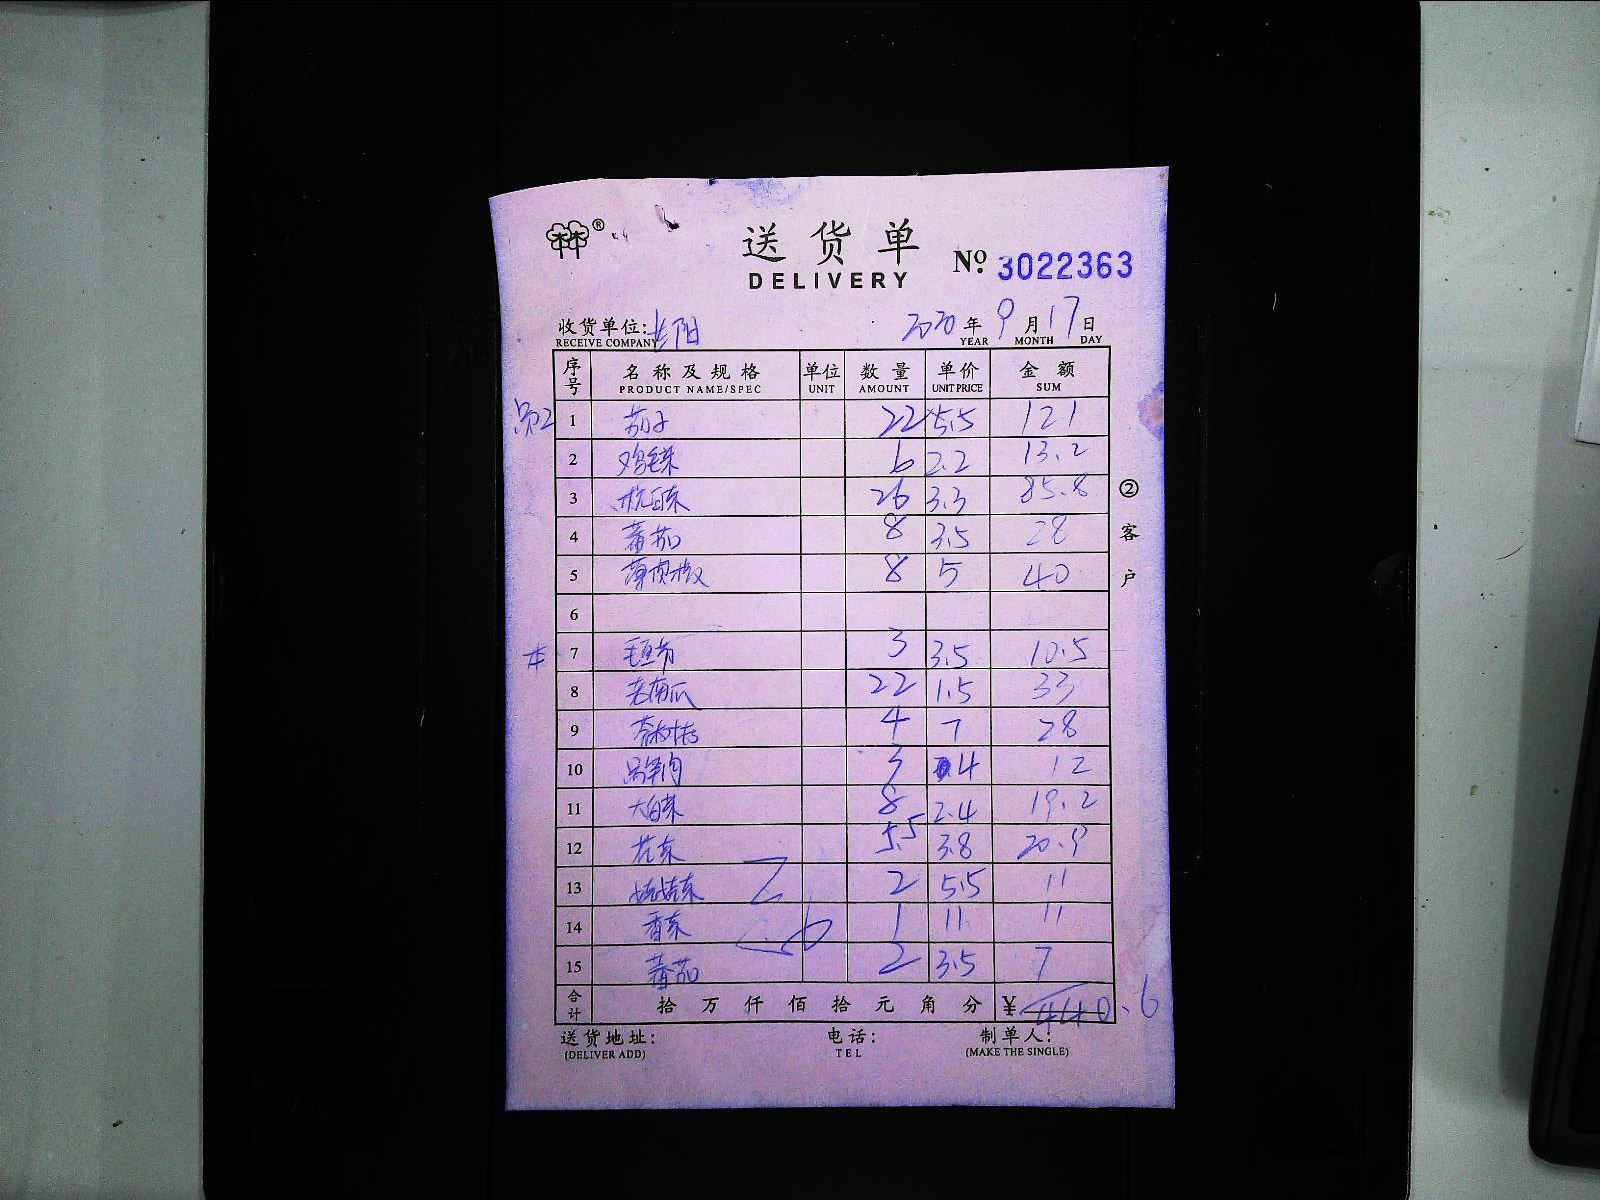 ®
送货单
DELIVERY
Nº 3022363
收货单位: 长阳 2020 年 9 月 17 日
RECEIVE COMPANY YEAR MONTH DAY
序号 名称及规格 单位 数量 单价 金额
PRODUCT NAME/SPEC UNIT AMOUNT UNIT PRICE SUM
员2 1 茄子 22 5.5 121
2 鸡毛菜 6 2.2 13.2
3 杭白菜 26 3.3 85.8
4 蕃茄 8 3.5 28
5 薄皮椒 8 5 40
6
7 毛豆节 3 3.5 10.5
8 老南瓜 22 1.5 33
9 4 7 28
10 3 4 12
11 大白菜 8 2.4 19.2
12 花菜 5.5 3.8 20.9
13 娃娃菜 2 5.5 11
14 香菜 1 11 11
15 蕃茄 2 3.5 7
合计 拾万仟佰拾元角分 ¥ 440.6
送货地址: 电话: 制单人:
(DELIVER ADD) TEL (MAKE THE SINGLE)
②客户